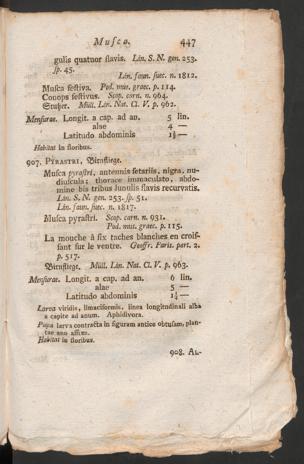 Musca. 447
gulis quatuor flavis. Lin. S. N. gen. 253.
sp. 45.
Lin. faun. suec. n. 1812.
Musca festiva. Pod. mus. graec. p. 114.
Conops festivus. Scop. carn. n. 964.
Müll. Lin. Nat. G. V. p. 962.
Mensurae. Longit. a cap. ad an. 5 lin.
alae 4 —
Latitudo abdominis 1½ —
Habitat in floribus.
907. PYRASTRI, Birnfliege.
Musca pyrastri, antennis setariis, nigra, nu-
diuscula; thorace immaculato, abdo-
mine bis tribus lunulis flavis recurvatis.
Lin. S. N. gen. 253. sp. 51.
Lin. faun. suec. n. 1817.
Musca pyrastri. Scop. carn. n. 931.
Pod. mus. graec. p. 115.
La mouche à six taches blanches en crois-
sant sur le ventre. Geoffr. Paris. part. 2.
p. 517.
Birnfliege. Müll. Lin. Nat. G. V. p. 963.
Mensurae. Longit. a cap. ad an. 6 lin.
alae 5 —
Latitudo abdominis 1¼ —
Larva viridis, limaciformis, linea longitudinali alba
a capite ad anum. Aphidivora.
Pupa larva contracta in figuram antice obtusam, plan-
tae ano affixa.
Habitat in floribus.
908. AL-